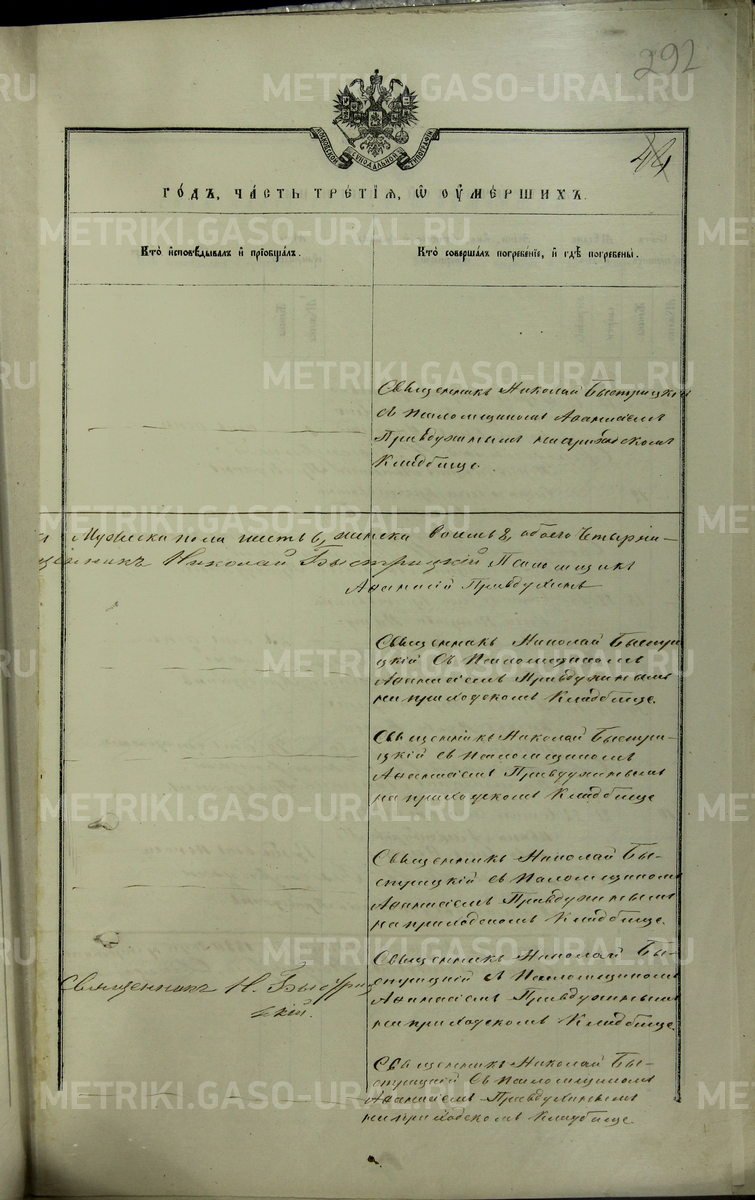 292
44
МОСКОВСКОЙ СѴНОДАЛЬНОЙ ТИПОГРАФІИ
ГОДЪ, ЧАСТЬ ТРЕТІЯ, Ѡ ОУМЕРШИХЪ.
Кто исповѣдывалъ и пріобщалъ.
Кто совершалъ погребеніе, и гдѣ погребены.
Священникъ Николай Быстрицкій
съ Псаломщикомъ Аѳанасіемъ
Правдухинымъ на приходскомъ
Кладбище.
Мужеска пола шесть 6, женска восемь 8, обоего Четырна-
щенникъ Николай Быстрицкій Псаломщикъ
Аѳанасій Правдухинъ
Священникъ Николай Быстри
цкій съ Псаломщикомъ
Аѳанасіемъ Правдухинымъ
на приходскомъ Кладбище.
Священникъ Николай Быстри-
цкій съ Псаломщикомъ
Аѳанасіемъ Правдухинымъ
на приходскомъ Кладбище
Священникъ Николай Бы-
стрицкій съ Псаломщикомъ
Аѳанасіемъ Правдухинымъ
на приходскомъ Кладбище.
Священникъ Николай Бы-
стрицкій съ Псаломщикомъ
Аѳанасіемъ Правдухинымъ
на приходскомъ Кладбище.
Священникъ Н. Быстри
цкій.
Священникъ Николай Бы-
стрицкій съ Псаломщикомъ
Аѳанасіемъ Правдухинымъ
на приходскомъ Кладбище.
METRIKI.GASO-URAL.RU